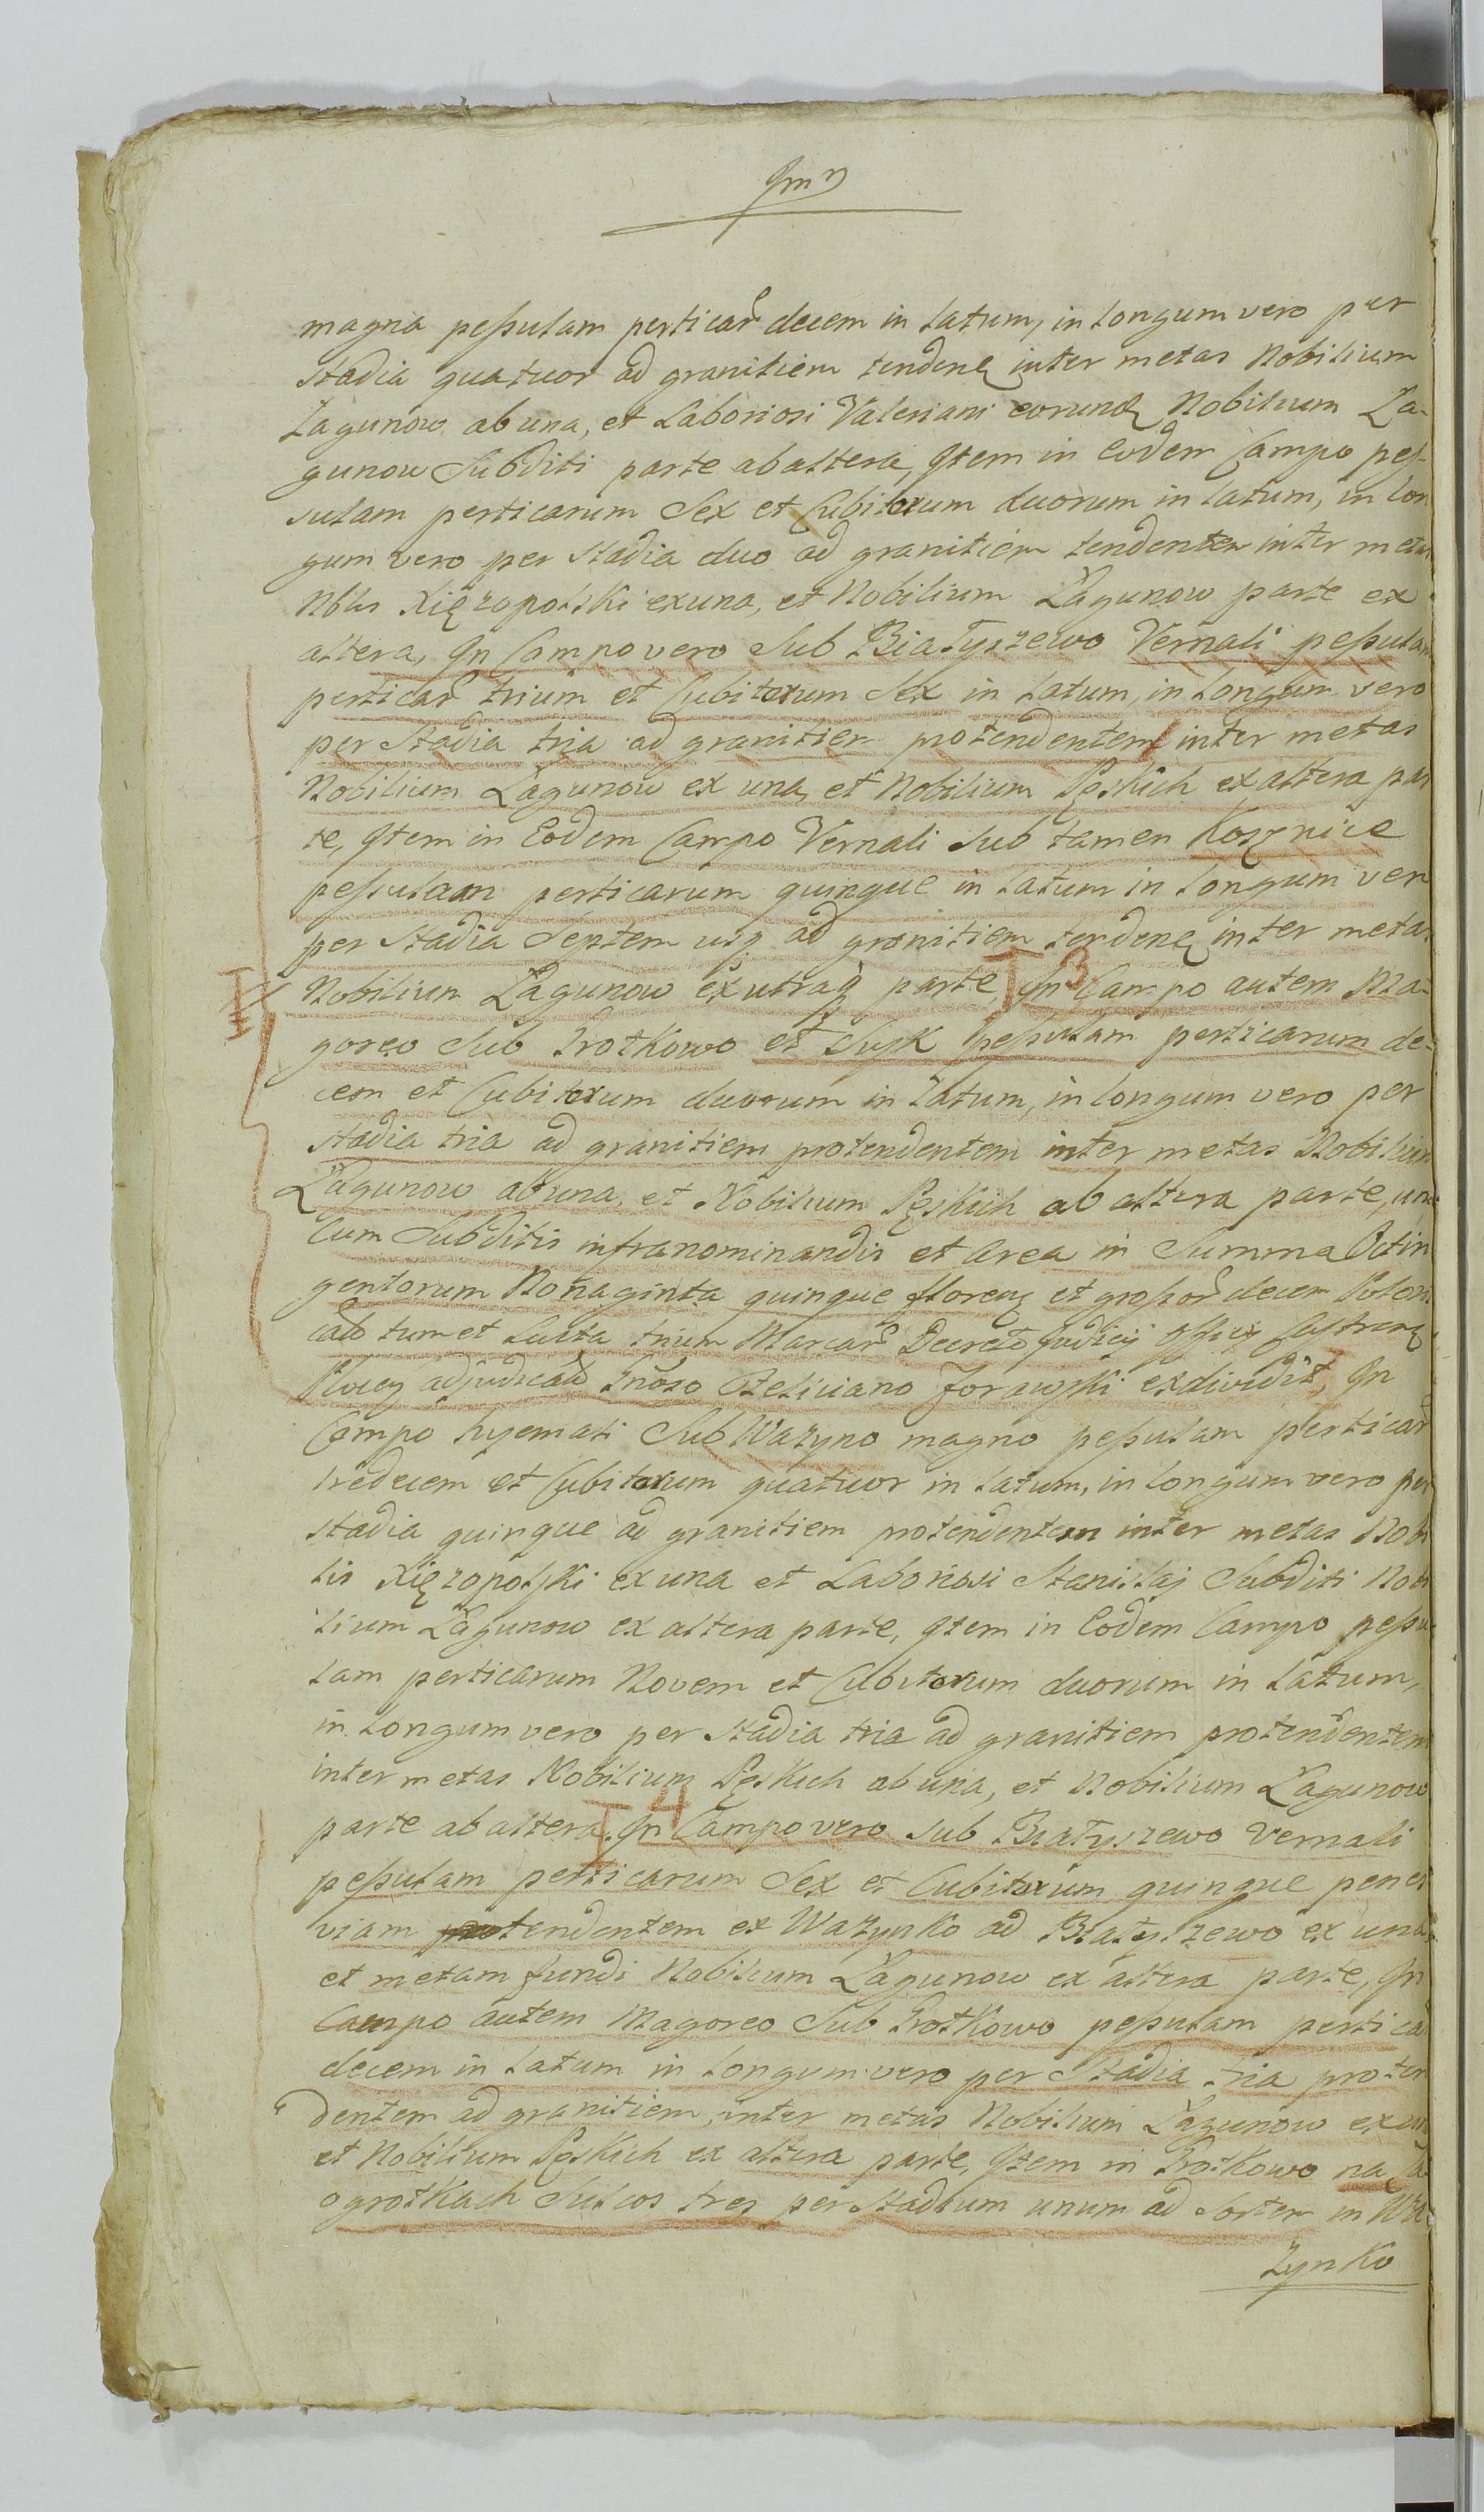 magna peſsulam perticar decem in latum, in longum vero per
stadia quatuor ad granitiem tenden inter metas Nobilium
Łagunow ab una, et Laboriosi Valeriani eorund Nobilium Ła-
gunow Subditi parte ab altera, Item in Eodem Campo peſ-
sulam perticarum Sex et Cubitorum duorum in latum, in lon
gum vero per stadia duo ad granitiem tendentem inter metas
Nblis Xięzopolski ex una, et Nobilium Łagunow parte ex
altera, In Campo vero Sub Białyszewo Vernali peſsulam
perticar trium et Cubitorum Sex in latum, in longum vero
per Stadia tria ad granitiem protendentem inter metas
Nobilium Łagunow ex una, et Nobilium Pęskich ex altera par
te, Item in Eodem Campo Vernali Sub tamen Kosznice
peſsulam perticarum quinque in latum in longum vero
per Stadia Septem usq ad granitiem tenden inter metas
Nobilium Łagunow ex utraq parte, In Campo autem Ma-
I 3
II
goreo Sub Srotkowo et Suſk peſsulam perticarum de-
cem et Cubitorum duorum in latum, in longum vero per
stadia tria ad granitiem protendentem inter metas Nobilium
Łagunow ab una, et Nobilium Pęskich ab altera parte, una
Cum Subditis infranominandis et Area in Summa Octin
gentorum Nonaginta quinque floren et groſsor decem Poloni
calium tum et Luita trium Marcar Decreto Judicij Officij Castren
Plocen adjudicat Gnoso Feliciano Jorawski exdividit, In
Campo hyemali Sub Wazyno magno peſsulam perticar
tredecem et Cubitorum quatuor in latum, in longum vero per
stadia quinque ad granitiem protendentem inter metas Nobi
lis Xięzopolſki ex una et Laboriosi Stanislai Subditi Nobi
lium Łagunow ex altera parte, Item in Eodem Campo peſsu
lam perticarum Novem et Cubitorum duorum in latum,
in longum vero per stadia tria ad granitiem protendentem
inter metas Nobilium Pęskich ab una, et Nobilium Łagunow
I 4
parte ab altera. In Campo vero sub Białyszewo Vernali
peſsulam perticarum Sex et Cubitorum quinque penes
viam tendentem ex Wazynko ad Białyszewo ex una
et metam fundi Nobilium Łagunow ex altera parte, In
Campo autem Magoreo Sub Srotkowo peſsulam perticar
decem in latum in longum vero per Stadia tria proten
dentem ad granitiem, inter metas Nobilium Łagunow ex una
et Nobilium Pęskich ex altera parte, Item in Srotkowo na Za
ogrotkach Sulcos tres per stadium unum ad Sortem in Wa-
zynko